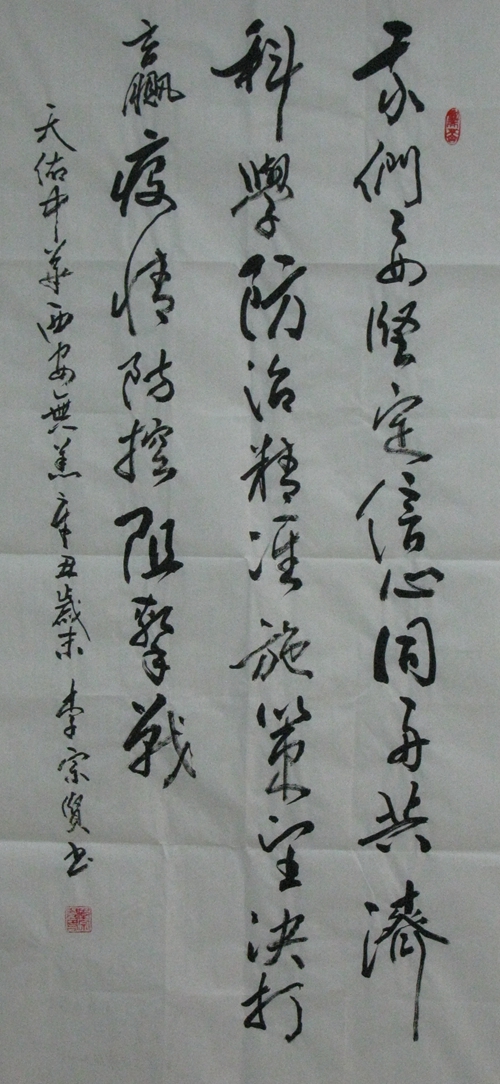 我們要堅定信心同舟共濟
科學防治精準施策堅決打
贏疫情防控阻擊戰
天佑中華西安無恙辛丑歲末 李宗賢書